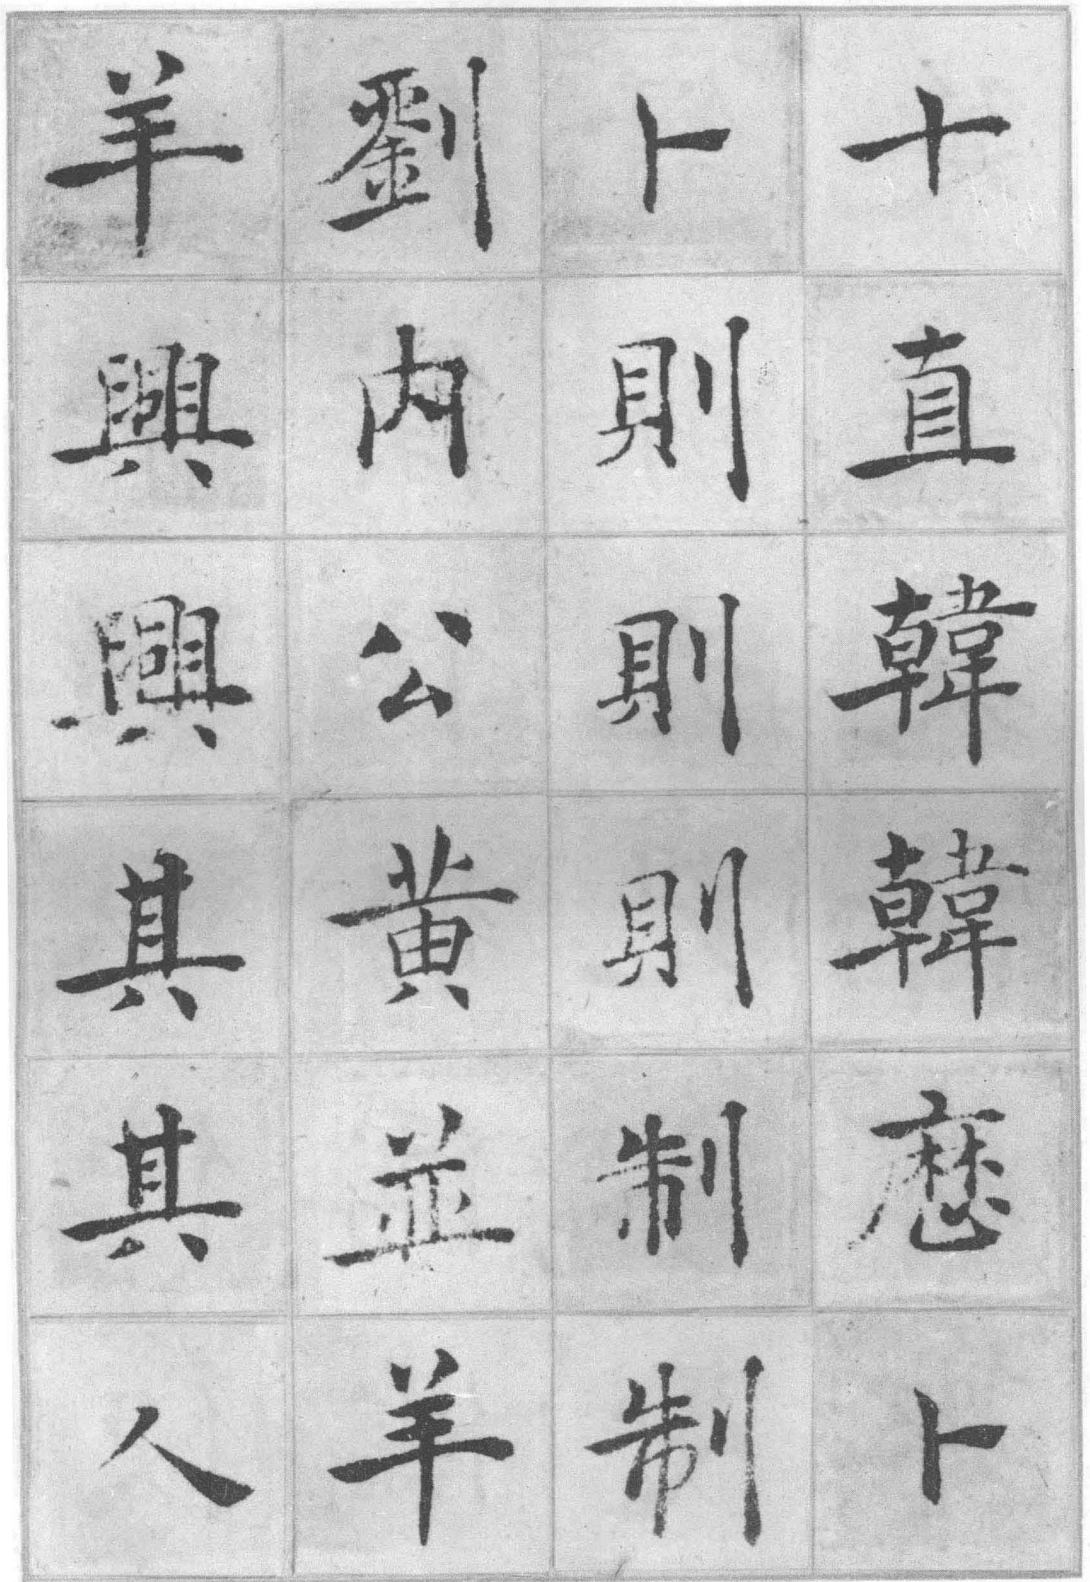 十直韓韓卜
卜則則則制制
劉内公黄並羊
羊興興其其人